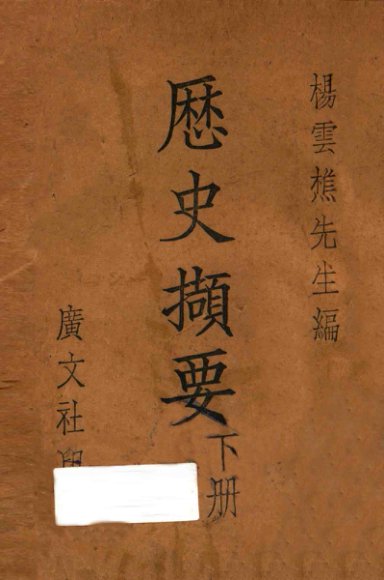 楊雲樵先生編
歷史擷要
下册
廣文社